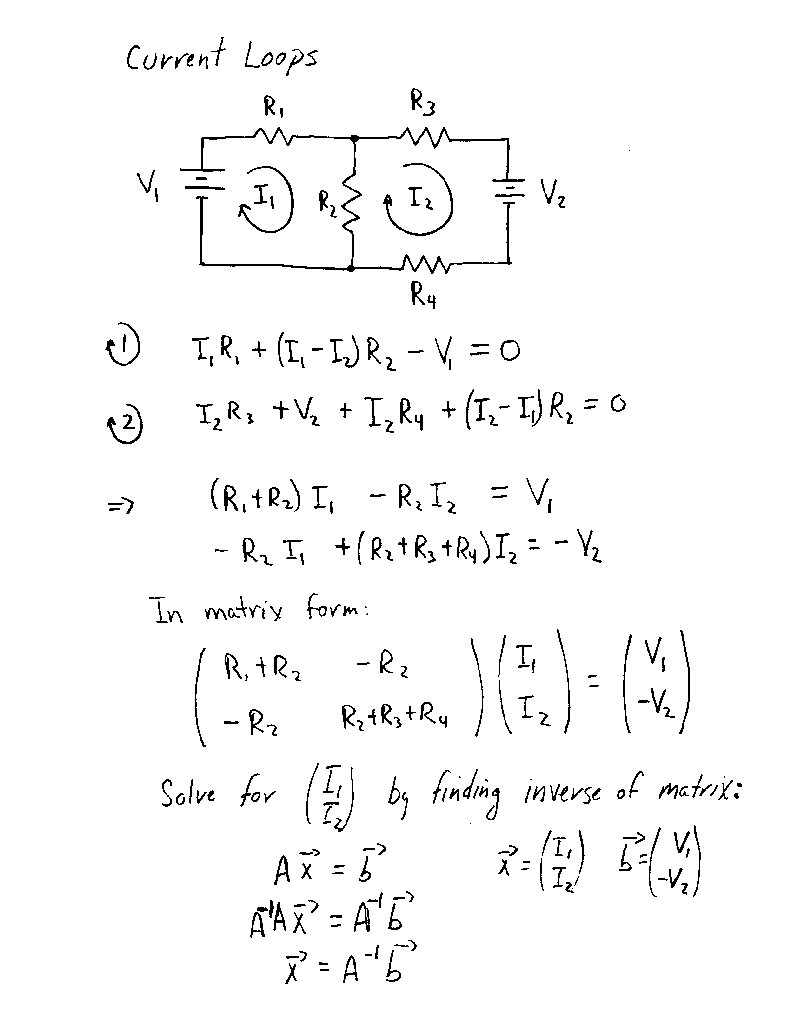 Current Loops
R₁ R₃
V₁ I₁ R₂ I₂ V₂
R₄
1 I₁R₁ + (I₁ - I₂)R₂ - V₁ = 0
2 I₂R₃ + V₂ + I₂R₄ + (I₂ - I₁)R₂ = 0
⇒ (R₁ + R₂) I₁ - R₂ I₂ = V₁
- R₂ I₁ + (R₂ + R₃ + R₄) I₂ = - V₂
In matrix form:
( R₁ + R₂ - R₂ ) ( I₁ ) = ( V₁ )
( - R₂ R₂ + R₃ + R₄ ) ( I₂ ) ( -V₂ )
Solve for (I₁ I₂) by finding inverse of matrix:
A x⃗ = b⃗ x⃗ = (I₁ I₂) b⃗ = (V₁ -V₂)
A⁻¹A x⃗ = A⁻¹ b⃗
x⃗ = A⁻¹ b⃗